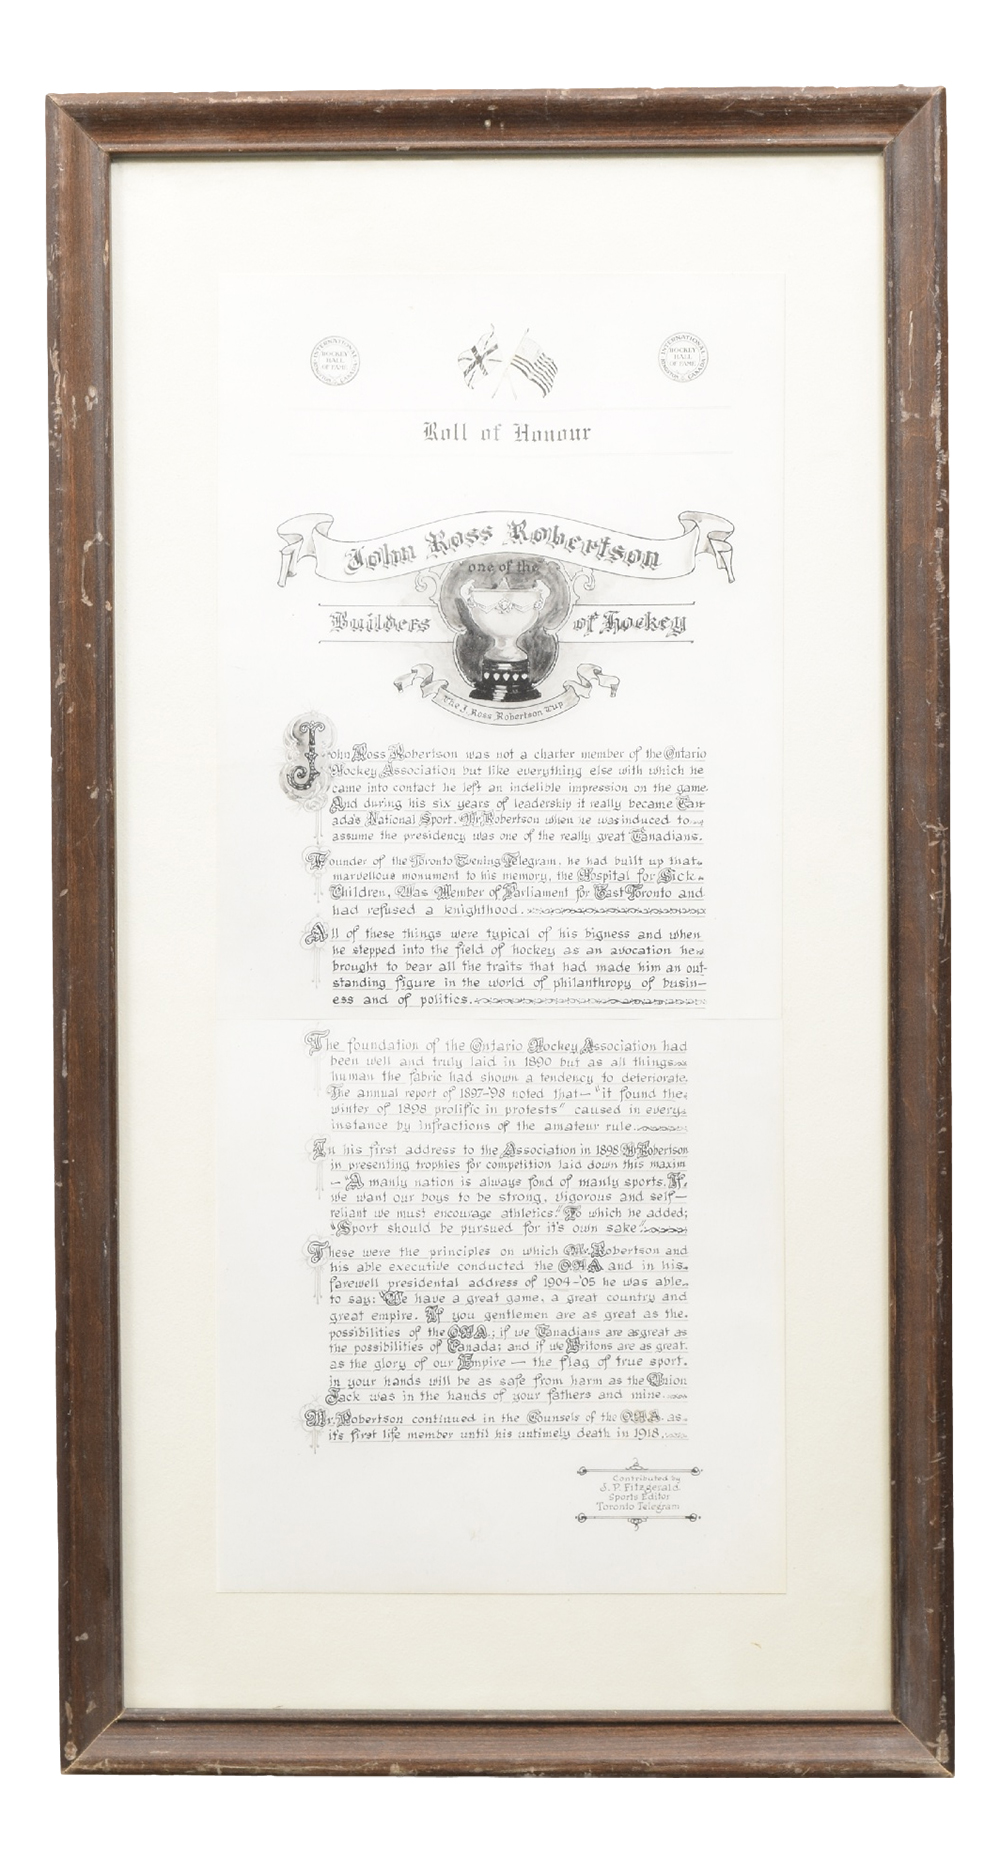 INTERNATIONAL
HOCKEY
HALL
OF FAME
KINGSTON CANADA
INTERNATIONAL
HOCKEY
HALL
OF FAME
KINGSTON CANADA
Roll of Honour
John Ross Robertson
one of the
Builders of Hockey
The J. Ross Robertson Cup
John Ross Robertson was not a charter member of the Ontario
Hockey Association but like everything else with which he
came into contact he left an indelible impression on the game.
And during his six years of leadership it really became Can-
ada's National Sport. Mr. Robertson when he was induced to
assume the presidency was one of the really great Canadians.
Founder of the Toronto Evening Telegram, he had built up that
marvellous monument to his memory, the Hospital for Sick
Children, Was Member of Parliament for East Toronto and
had refused a knighthood.
All of these things were typical of his bigness and when
he stepped into the field of hockey as an avocation he
brought to bear all the traits that had made him an out-
standing figure in the world of philanthropy of busin-
ess and of politics.
The foundation of the Ontario Hockey Association had
been well and truly laid in 1890 but as all things
human the fabric had shown a tendency to deteriorate.
The annual report of 1897-'98 noted that — "it found the
winter of 1898 prolific in protests" caused in every
instance by infractions of the amateur rule.
In his first address to the Association in 1898 Mr Robertson
in presenting trophies for competition laid down this maxim
— "A manly nation is always fond of manly sports. If
we want our boys to be strong, vigorous and self-
reliant we must encourage athletics." To which he added;
"Sport should be pursued for it's own sake".
These were the principles on which Mr. Robertson and
his able executive conducted the O.H.A and in his
farewell presidental address of 1904-'05 he was able
to say: "We have a great game, a great country and
great empire. If you gentlemen are as great as the
possibilities of the O.H.A.; if we Canadians are as great as
the possibilities of Canada; and if we Britons are as great
as the glory of our Empire — the flag of true sport
in your hands will be as safe from harm as the Union
Jack was in the hands of your fathers and mine.
Mr. Robertson continued in the Counsels of the O.H.A. as
it's first life member until his untimely death in 1918.
Contributed by
J. P. Fitzgerald.
Sports Editor
Toronto Telegram